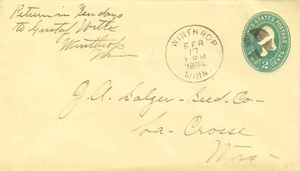 Return in Ten days
to Gustof Witte
Winthrop
Minn
WINTHROP
FEB
17
1894
MINN.
U.S. POSTAGE
TWO 2 CENTS
J. A. Salzer - Seed - Co -
La - Crosse
Wis -